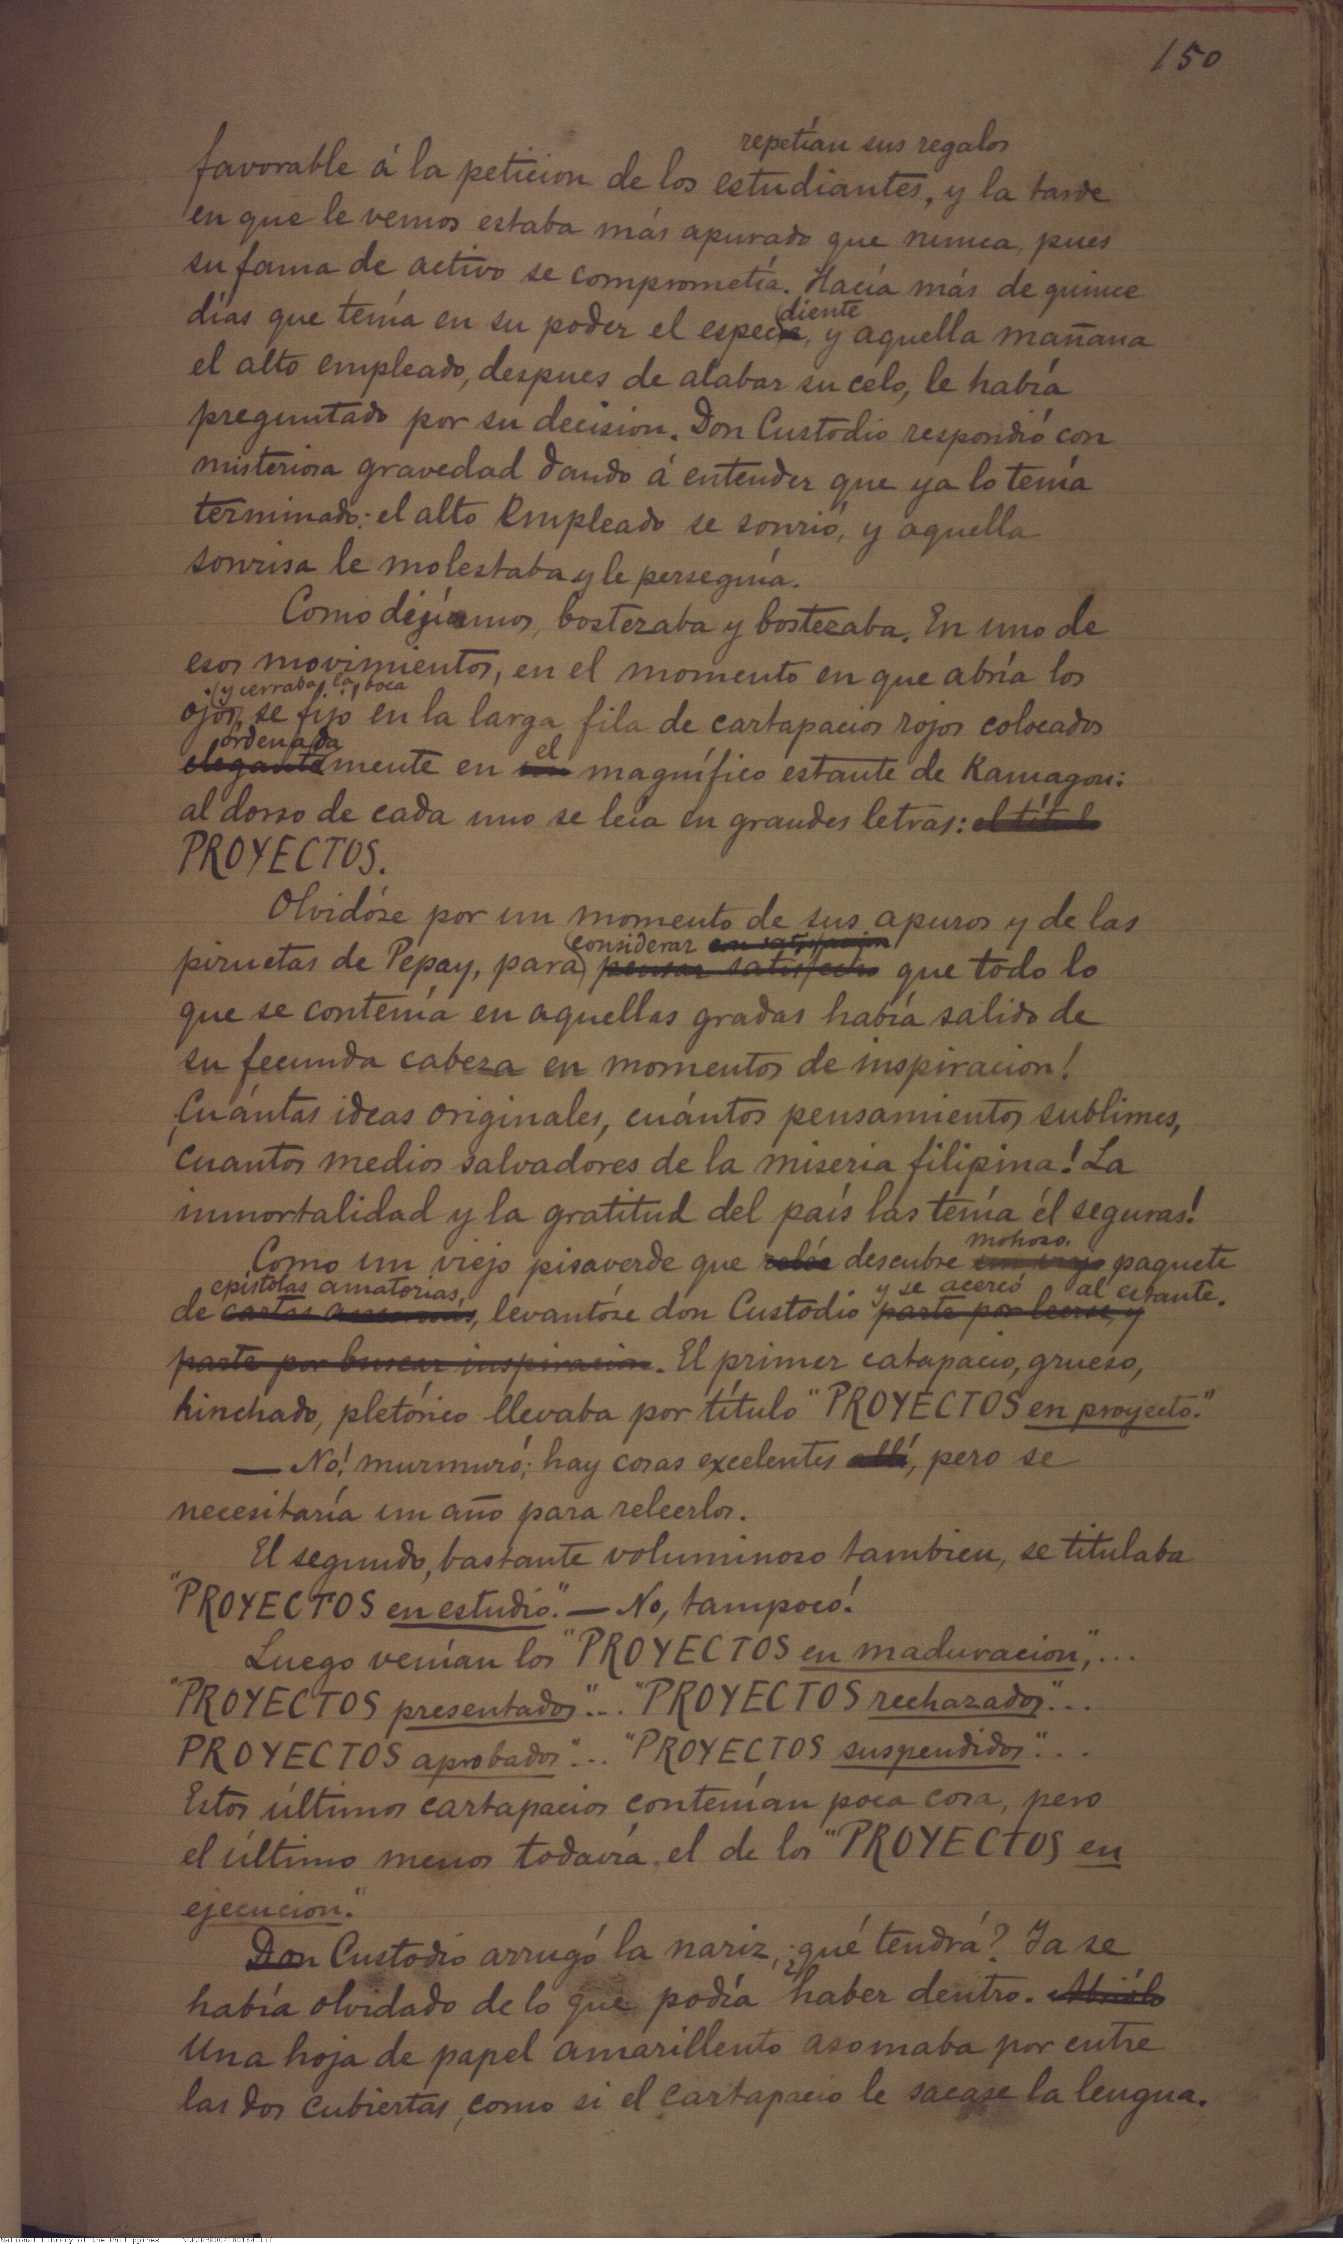 150
repetían sus regalos
favorable á la peticion de los estudiantes, y la tarde
en que le vemos estaba más apurado que nunca, pues
su fama de activo se comprometía. Hacía más de quince
diente
días que tenía en su poder el espec, y aquella mañana
el alto empleado, despues de alabar su celo, le había
preguntado por su decision. Don Custodio respondió con
misteriosa gravedad dando á entender que ya lo tenía
terminado: el alto Empleado se sonrió, y aquella
sonrisa le molestaba y le perseguía.
Como dijimos, bostezaba y bostezaba. En uno de
esos movimientos, en el momento en que abría los
y cerraba la boca
ojos, se fijó en la larga fila de cartapacios rojos colocados
ordenada el
elegantemente en un magnífico estante de Kamagon:
al dorso de cada uno se leía en grandes letras: el títul
PROYECTOS.
Olvidóse por un momento de sus apuros y de las
considerar con satisfaccion
piruetas de Pepay, para pensar satisfecho que todo lo
que se contenía en aquellas gradas había salido de
su fecunda cabeza en momentos de inspiracion!
Cuántas ideas originales, cuántos pensamientos sublimes,
cuantos medios salvadores de la miseria filipina! La
inmortalidad y la gratitud del país las tenía él seguras!
mohoso
Como un viejo pisaverde que descubre un viejo paquete
epístolas amatorias, y se acercó al estante.
de cartas amorosas, levantóse don Custodio parte por leerse, y
parte por buscar inspiracion. El primer catapacio, grueso,
hinchado, pletórico llevaba por título "PROYECTOS en proyecto."
— No! murmuró; hay cosas excelentes allí, pero se
necesitaría un año para releerlos.
El segundo, bastante voluminoso tambien, se titulaba
"PROYECTOS en estudio." — No, tampoco!
Luego venían los "PROYECTOS en maduracion,"...
"PROYECTOS presentados"... "PROYECTOS rechazados"...
PROYECTOS aprobados"... "PROYECTOS suspendidos"...
Estos últimos cartapacios contenían poca cosa, pero
el último menos todavía, el de los "PROYECTOS en
ejecucion."
Don Custodio arrugó la nariz, ¿qué tendrá? Ya se
había olvidado de lo que podía haber dentro. Abriólo
Una hoja de papel amarillento asomaba por entre
las dos cubiertas, como si el cartapacio le sacase la lengua.